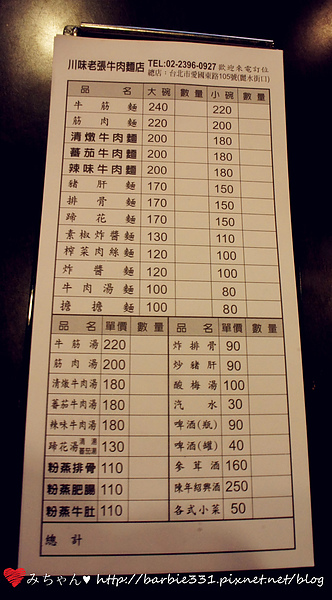 川味老張牛肉麵店 TEL:02-2396-0927 歡迎來電訂位
總店：台北市愛國東路105號(麗水街口)
品 名 大碗 數量 小碗 數量
牛筋麵 240 220
筋肉麵 220 200
清燉牛肉麵 200 180
蕃茄牛肉麵 200 180
辣味牛肉麵 200 180
豬肝麵 170 150
排骨麵 170 150
蹄花麵 170 150
素椒炸醬麵 130 110
榨菜肉絲麵 120 100
炸醬麵 120 100
牛肉湯麵 100 80
擔擔麵 100 80
品 名 單價 數量 品 名 單價 數量
牛筋湯 220 炸排骨 90
筋肉湯 200 炒豬肝 90
清燉牛肉湯 180 酸梅湯 100
蕃茄牛肉湯 180 汽水 30
辣味牛肉湯 180 啤酒(瓶) 90
蹄花湯 清湯 蕃茄湯 130 啤酒(罐) 40
粉蒸排骨 110 參茸酒 160
粉蒸肥腸 110 陳年紹興酒 250
粉蒸牛肚 110 各式小菜 50
總 計
みちゃん♥ http://barbie331.pixnet.net/blog